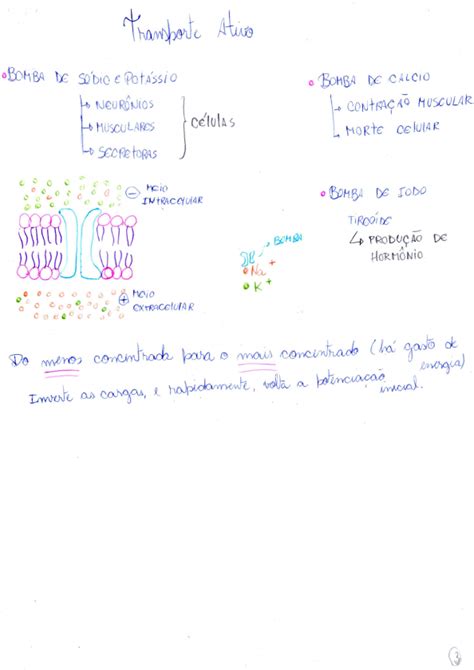 Transporte Ativo
• BOMBA DE SÓDIO E POTÁSSIO
↳ NEURÔNIOS
↳ MUSCULARES
↳ SECRETORAS
CÉLULAS
• BOMBA DE CÁLCIO
↳ CONTRAÇÃO MUSCULAR
↳ MORTE CELULAR
⊖ MEIO
INTRACELULAR
⊕ MEIO
EXTRACELULAR
→ BOMBA
Na+
K+
• BOMBA DE IODO
TIREÓIDE
↳ PRODUÇÃO DE
HORMÔNIO
Do menos concentrado para o mais concentrado (há gasto de
energia)
Inverte as cargas, e rapidamente, volta a potenciação
inicial.
3